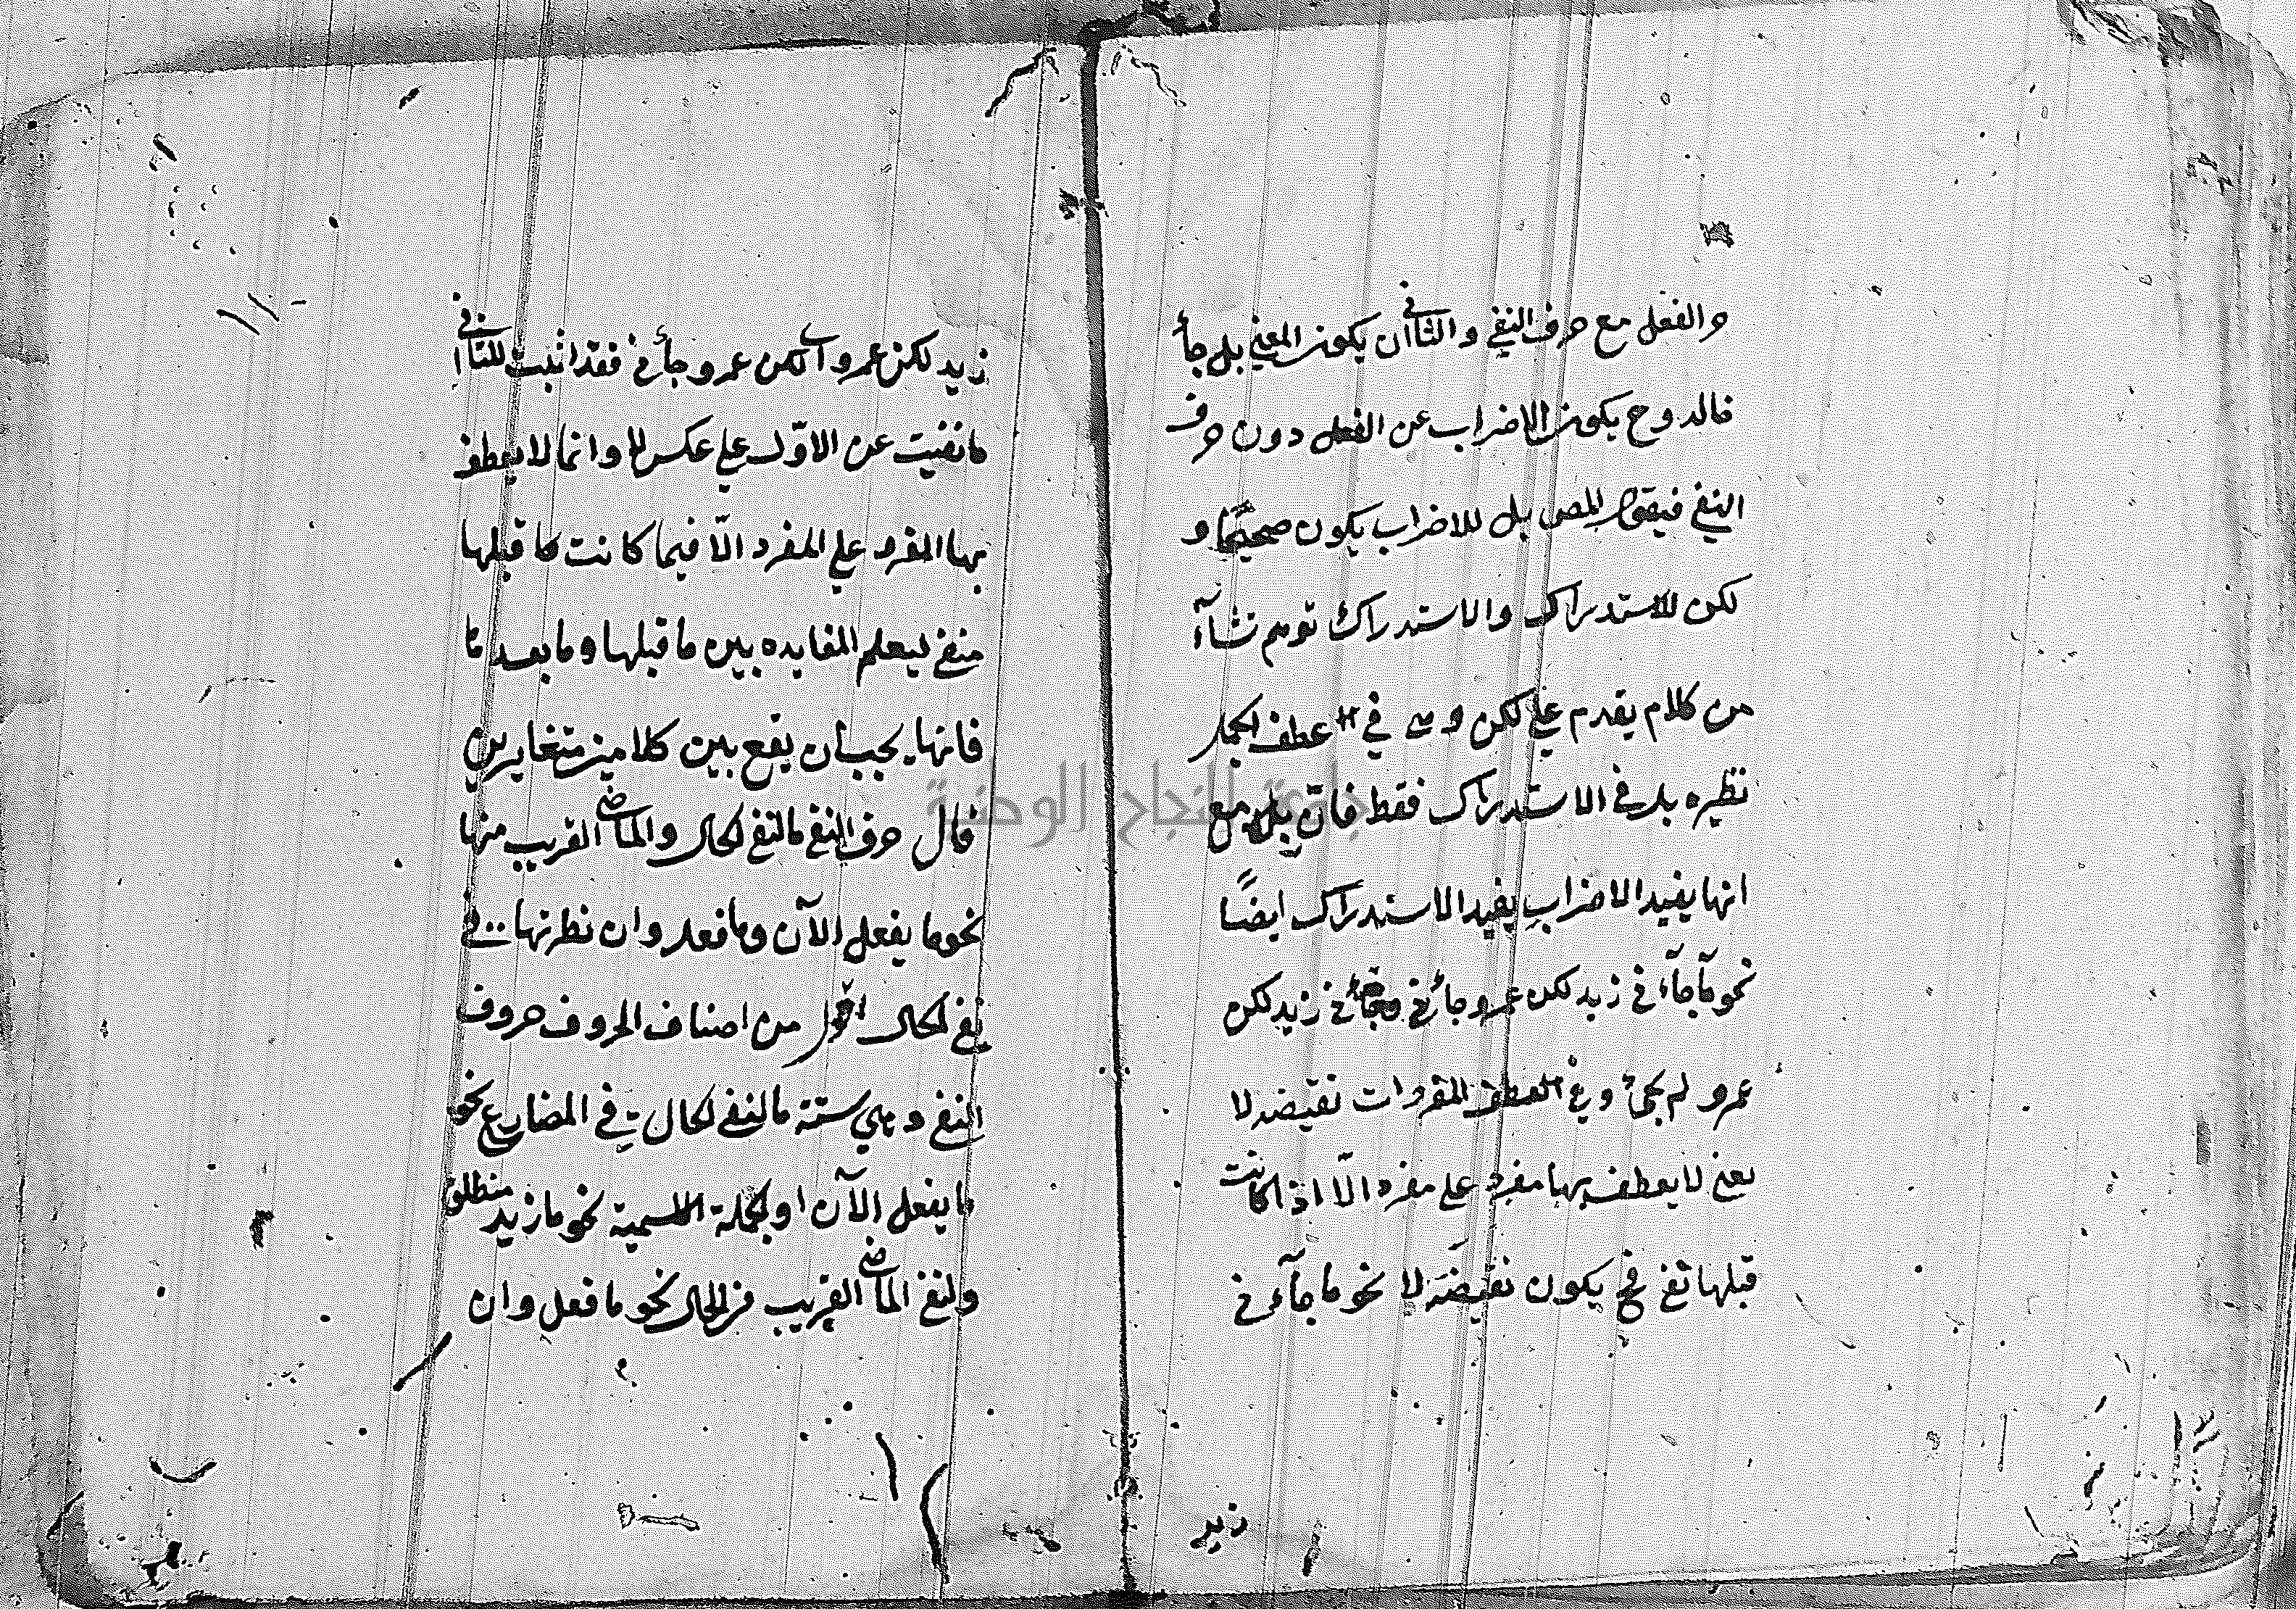 والفعل مع حرف النفي والثاني ان يكون المعني بل جأ
خالد وح يكون الاضراب عن الفعل دون حرف
النفي فيقول المص بل للاضراب يكون صحيحًا و
لكن للاستدراك والاستدراك توهم نشآء
من كلام يقدم علي لكن وهي في عطف الجمل
نظيره بل في الاستدراك فقط فانّ بل مع
انها يفيد الاضراب يفيد الاستدراك ايضًا
نحو مآ جآء ني زيد لكن عمرو جأني وجأني زيد لكن
عمرو لم يجئ وفي عطف المفردات نقيضه لا
يعني لا يعطف بها مفرد علي مفرد الّا اذا كانت
قبلها نفي فح يكون نقيضَه لا نحو ما جآءني
زيد
زيد لكن عمرو اي لكن عمرو جأني فقد اثبت للثاني
ما نفيت عن الاوّل علي عكس لا وانما لا يعطف
بها المفرد علي المفرد الّا فيما كانت ما قبلها
منفي ليعلم المغايره بين ما قبلها وما بعدها
فانها يجب ان يقع بين كلامين متغايرين
قال حرف النفي ما لنفي الحال والماضي القريب منها
نحو ما يفعل الآن وما فعل وان نظيرتها في
نفي الحال اقول من اصناف الحروف حروف
النفي وهي ستة ما لنفي الحال في المضارع نحو
ما يفعل الآن او الجملة الاسمية نحو ما زيد منطلق
ولنفي الماضي القريب من الحال نحو ما فعل وان
جامعة النجاح الوطنية